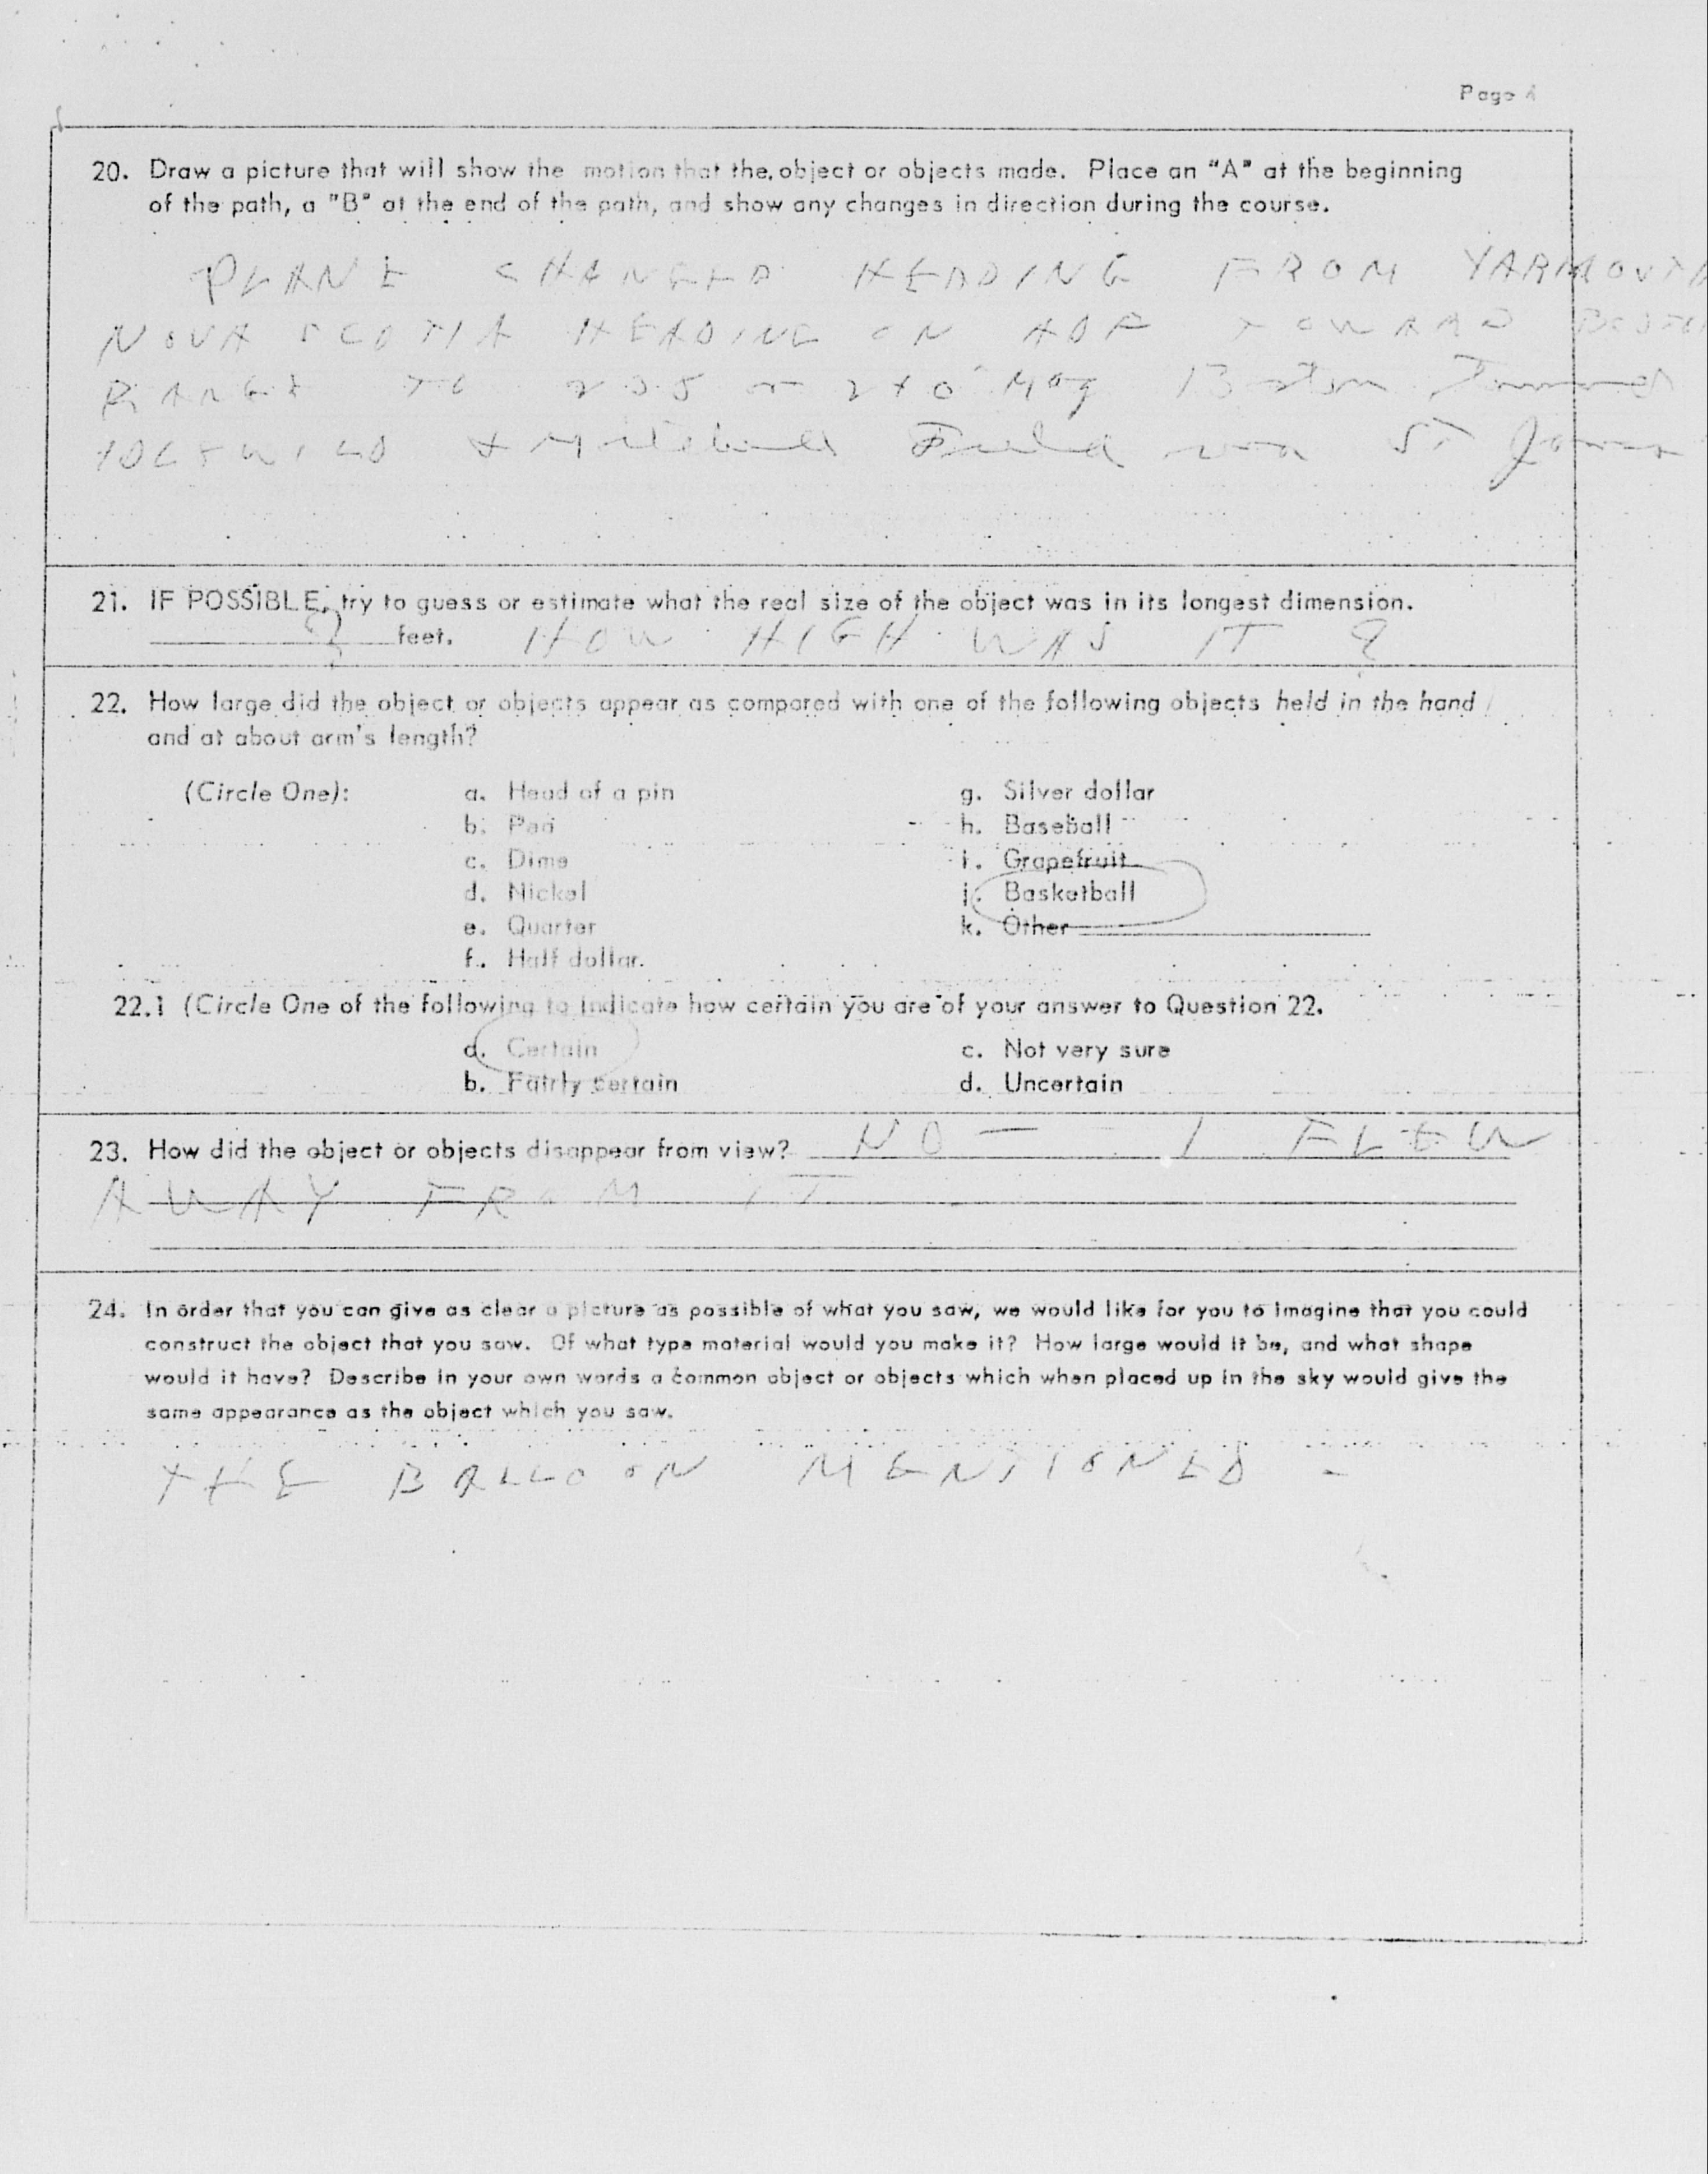 Page 4
20. Draw a picture that will show the motion that the object or objects made. Place an "A" at the beginning
of the path, a "B" at the end of the path, and show any changes in direction during the course.
PLANE CHANGED HEADING FROM YARMOUTH
NOVA SCOTIA HEADING ON ADF TOWARD BOSTON
RANGE TO 235 or 240° Mag Boston Toward
IDLEWILD & Mitchell Field via ST
21. IF POSSIBLE, try to guess or estimate what the real size of the object was in its longest dimension.
? feet. HOW HIGH WAS IT ?
22. How large did the object or objects appear as compared with one of the following objects held in the hand
and at about arm's length?
(Circle One): a. Head of a pin g. Silver dollar
b. Pea h. Baseball
c. Dime i. Grapefruit
d. Nickel j. Basketball
e. Quarter k. Other
f. Half dollar.
22.1 (Circle One of the following to indicate how certain you are of your answer to Question 22.
a. Certain c. Not very sure
b. Fairly certain d. Uncertain
23. How did the object or objects disappear from view? NO — I FLEW
AWAY FROM IT
24. In order that you can give as clear a picture as possible of what you saw, we would like for you to imagine that you could
construct the object that you saw. Of what type material would you make it? How large would it be, and what shape
would it have? Describe in your own words a common object or objects which when placed up in the sky would give the
same appearance as the object which you saw.
THE BALLOON MENTIONED -